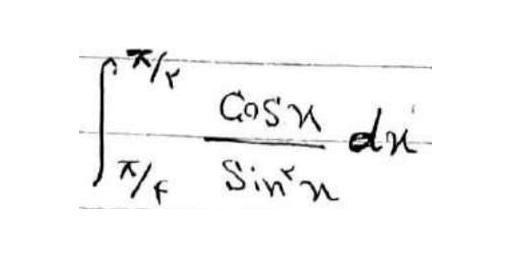 ∫_{π/۴}^{π/۲} Cosx / Sin^۲x dx